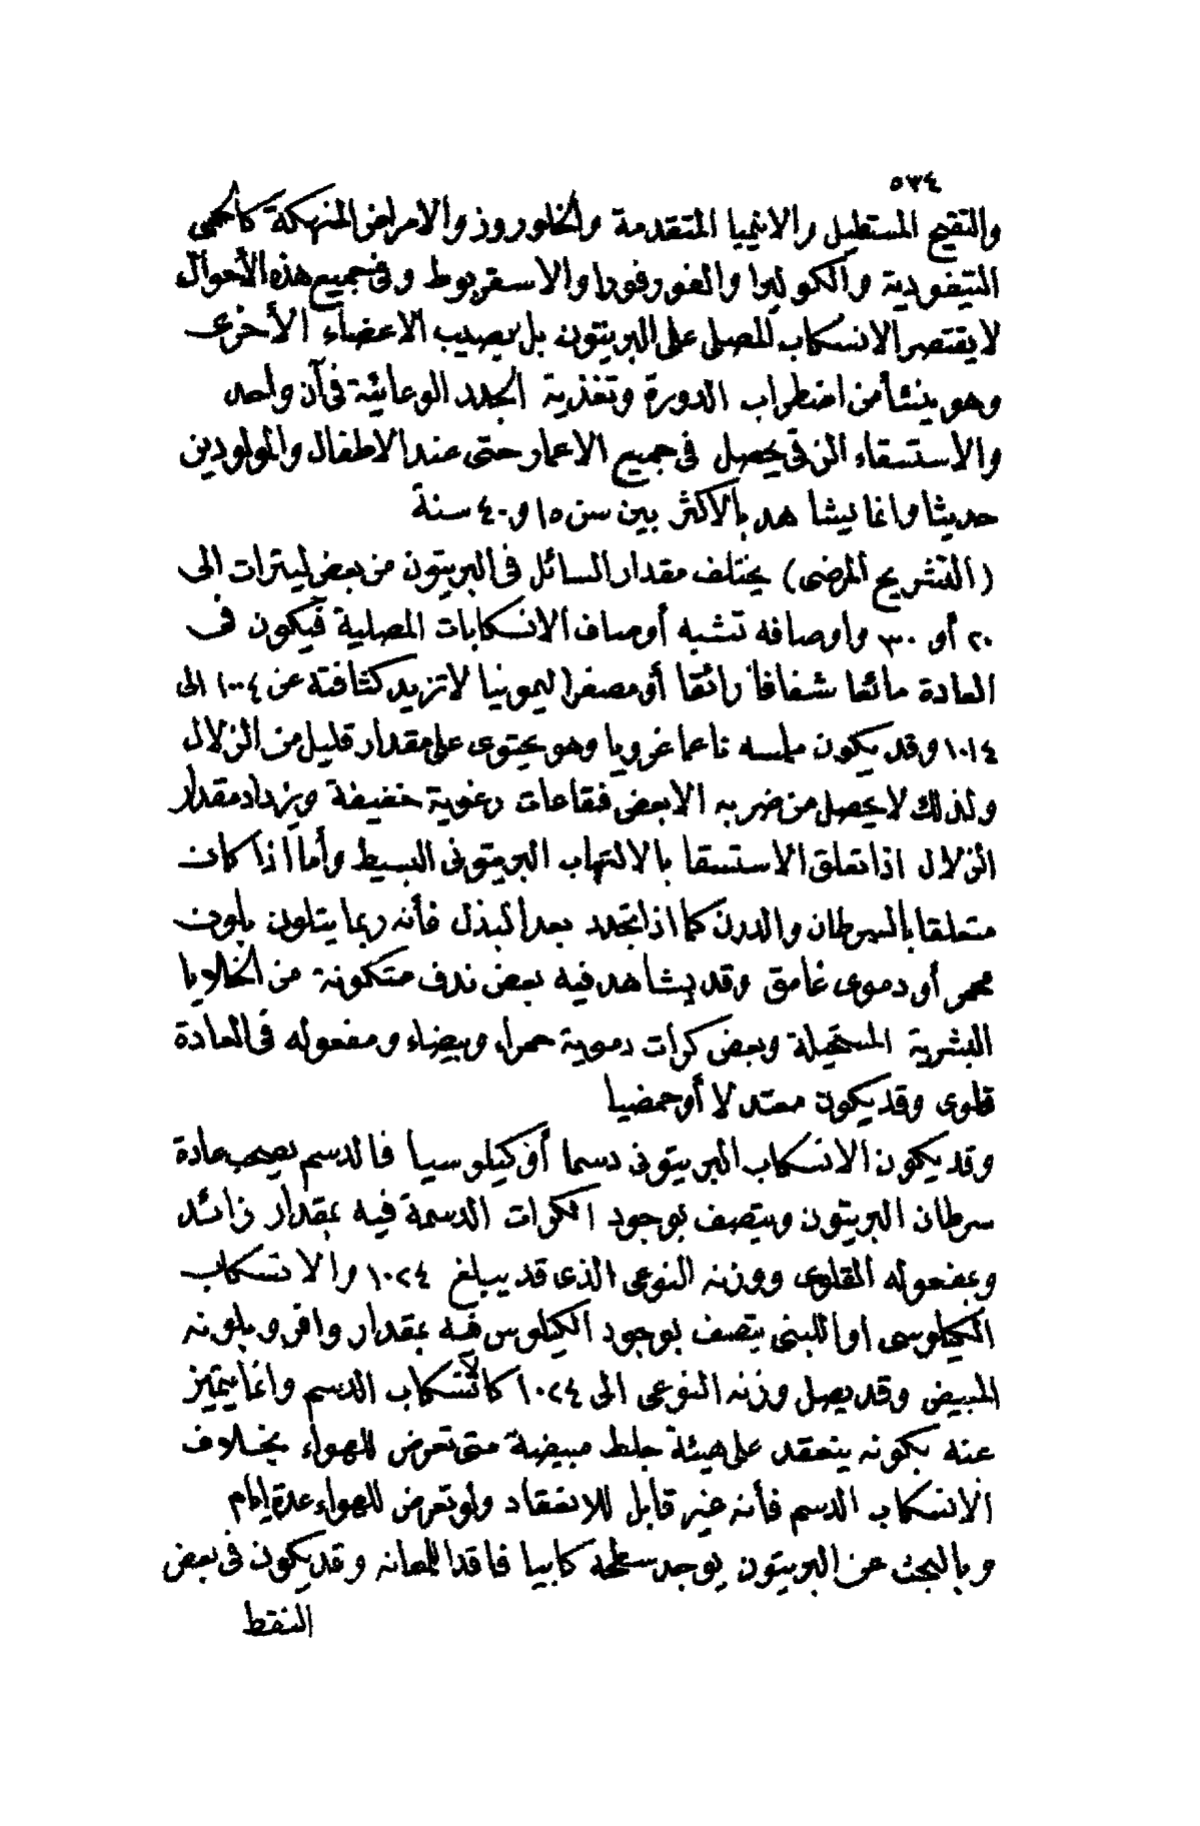 ٥٣٤
والتقيح المستطيل والانيميا المتقدمة والخلوروز والامراض المنهكة كالحمى
التيفودية والكوليرا والفورفورا والاسقربوط وفى جميع هذه الأحوال
لا يقتصر الانسكاب المصلى على البريتون بل يصيب الاعضاء الأخرى
وهو ينشأ من اضطراب الدورة وتغذية الجدد الوعائية فى آن واحد
والاستسقاء الزقى يحصل فى جميع الاعمار حتى عند الاطفال والمولودين
حديثا وانما يشاهد بالاكثر بين سن ١٥ و ٤٠ سنة
(التشريح المرضى) يختلف مقدار السائل فى البريتون من بعض ليترات الى
٢٠ أو ٣٠ واوصافه تشبه أوصاف الانسكابات المصلية فيكون فى
العادة مائعا شفافا رائقا أو مصفرا ليمونيا لا تزيد كثافته عن ١٠٠٤ الى
١٠١٤ وقد يكون ملمسه ناعما غرويا وهو يحتوى على مقدار قليل من الزلال
ولذلك لا يحصل من ضربه الا بعض فقاعات رغوية خفيفة ويزداد مقدار
الزلال اذا تعلق الاستسقا بالالتهاب البريتونى البسيط وأما اذا كان
متعلقا بالسرطان والدرن كما اذا تجدد بعد البذل فأنه ربما يتلون بلون
محمر أو دموى غامق وقد يشاهد فيه بعض ندف متكونة من الخلايا
البشرية المستحيلة وبعض كرات دموية حمراء وبيضاء ومفعوله فى العادة
قلوى وقد يكون معتدلا أو حمضيا
وقد يكون الانسكاب البريتونى دسما أو كيلوسيا فالدسم يصحب عادة
سرطان البريتون ويتصف بوجود الكرات الدسمة فيه بمقدار زائد
وبمفعوله القلوى ووزنه النوعى الذى قد يبلغ ١٠٢٤ والانسكاب
الكيلوسى او اللبنى يتصف بوجود الكيلوس فيه بمقدار وافر وبلونه
المبيض وقد يصل وزنه النوعى الى ١٠٢٤ كالانسكاب الدسم وانما يتميز
عنه بكونه ينعقد على هيئة جلط مبيضة متى تعرض للهواء بخلاف
الانسكاب الدسم فأنه غير قابل للانعقاد ولو تعرض للهواء عدة ايام
وبالبحث عن البريتون يوجد سطحه كابيا فاقدا للمعانه وقد يكون فى بعض
النقط